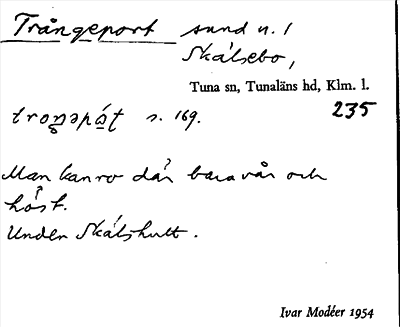 Trångeport sund n. 1
Skälsebo,
Tuna sn, Tunaläns hd, Klm. l.
235
s. 169.
Man kan ro där bara vår och
höst.
Under Skälshult.
Ivar Modéer 1954